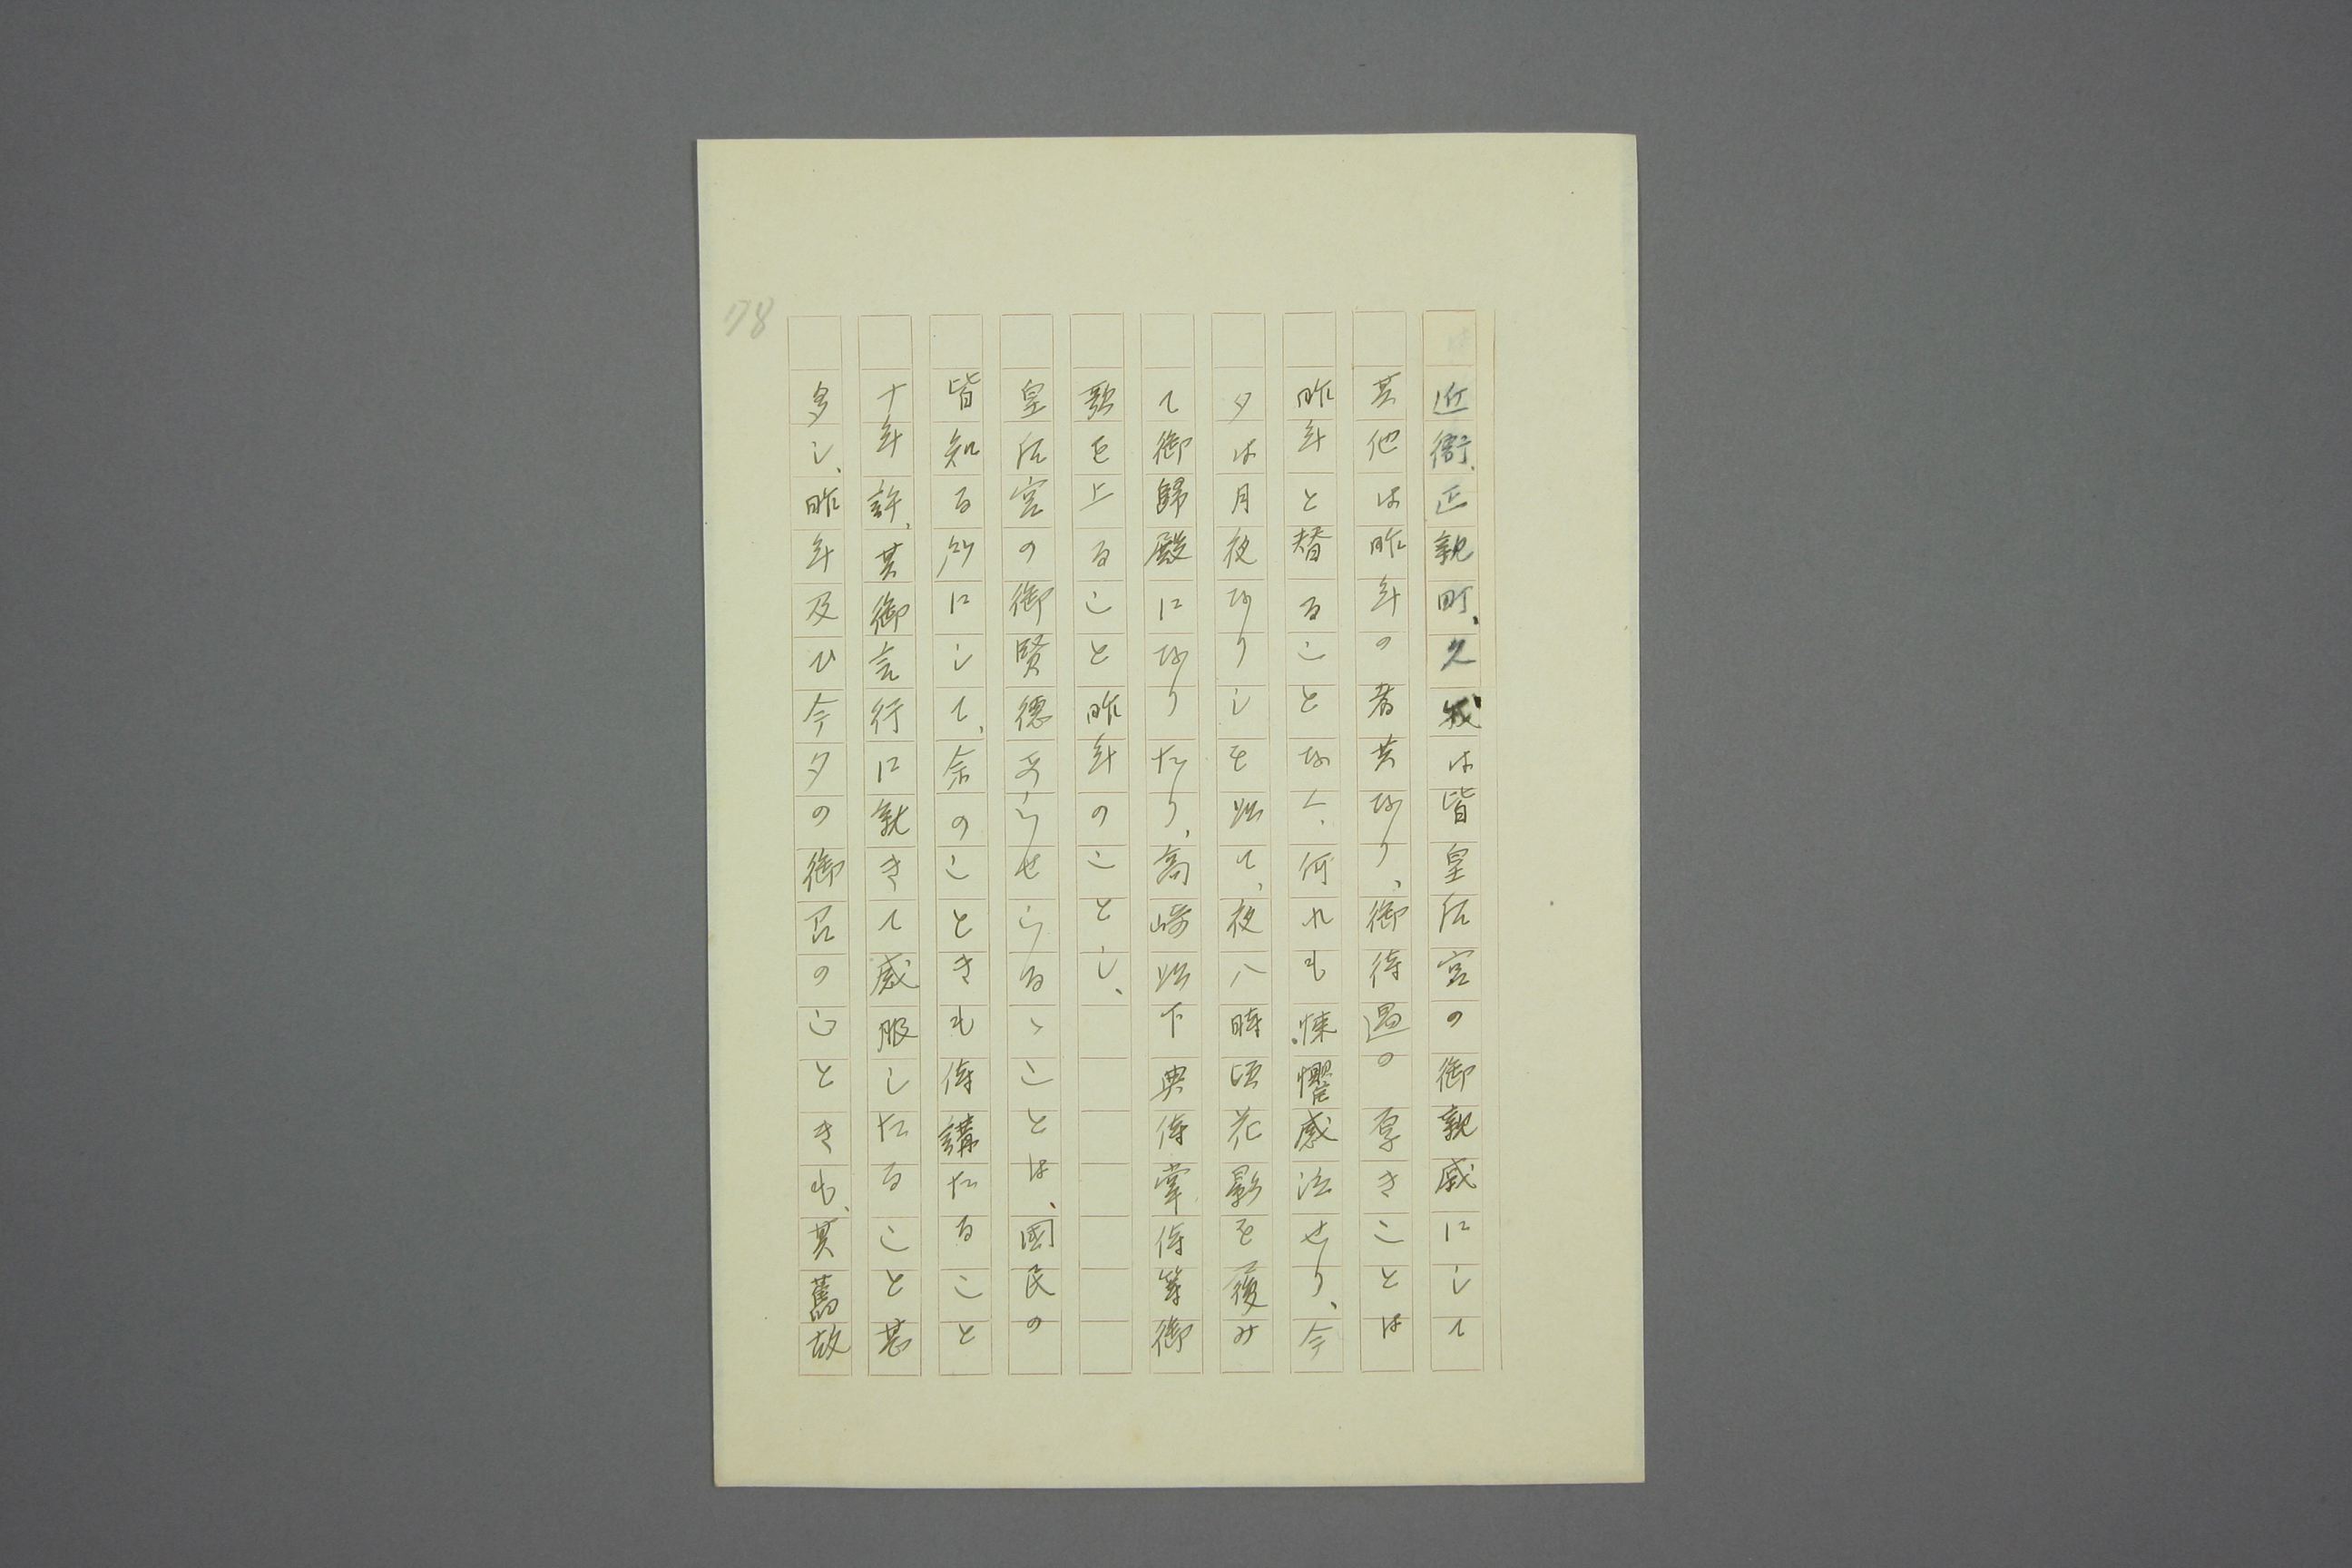 近衞、正親町、久我は皆皇后宮の御親戚にして
其他は昨年の者共なり、御待遇の厚きことは
昨年と替ることなく、何れも悚懼感泣せり、今
夕は月夜なりしを以て、夜八時頃花影を後み
て御歸殿になりたり、高崎以下典侍掌侍等御
歌を上ること昨年のことし、
皇后宮の御賢德あらせらるゝことは、國民の
皆知る所にして、余のこときも侍講たること
十年許、其御言行に就きて感服したること甚
多し、昨年及ひ今夕の御召のことときも、其舊故
78